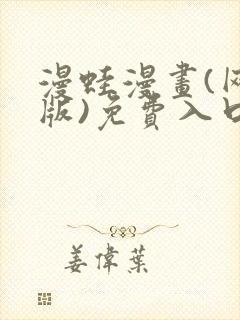 漫蛙漫畫(网
版)免費入口
姜偉葉